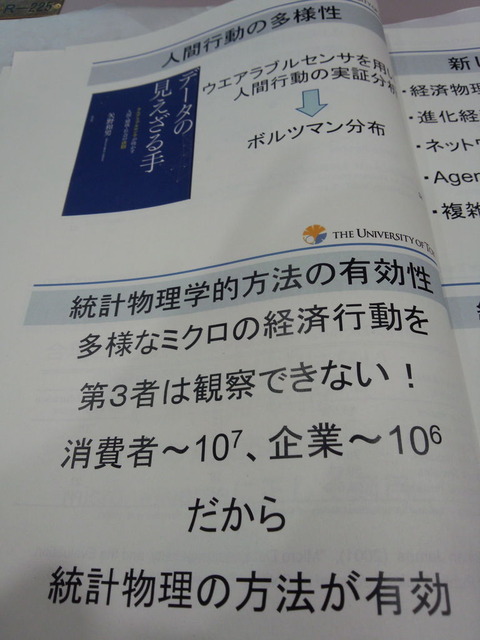 R-225
人間行動の多様性
ウエアラブルセンサを用い
人間行動の実証分
ボルツマン分布
データの
見えざる手
矢野和男
THE UNIVERSITY OF TO
統計物理学的方法の有効性
多様なミクロの経済行動を
第3者は観察できない！
消費者～10⁷、企業～10⁶
だから
統計物理の方法が有効
新し
・経済物理
・進化経
・ネットワ
・Agen
・複雑